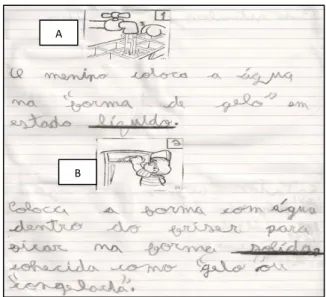 A
1
O menino coloca a água
na "forma de gelo" em
estado líquido.
B
2
Coloca a forma com água
dentro do friser para
ficar na forma solida,
cohecida como "gelo ou
"congelada".